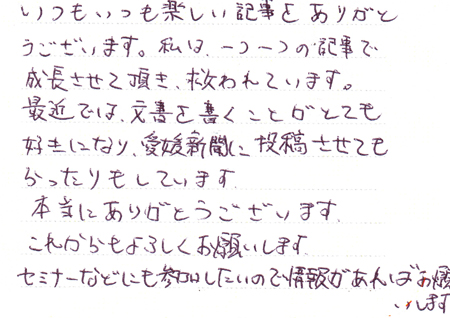 いつもいつも楽しい記事をありがと
うございます。私は、一つ一つの記事で
成長させて頂き、救われています。
最近では、文書を書くことがとても
好きになり、愛媛新聞に投稿させても
らったりもしています
本当にありがとうございます。
これからもよろしくお願いします
セミナーなどにも参加したいので情報があればお願
いします